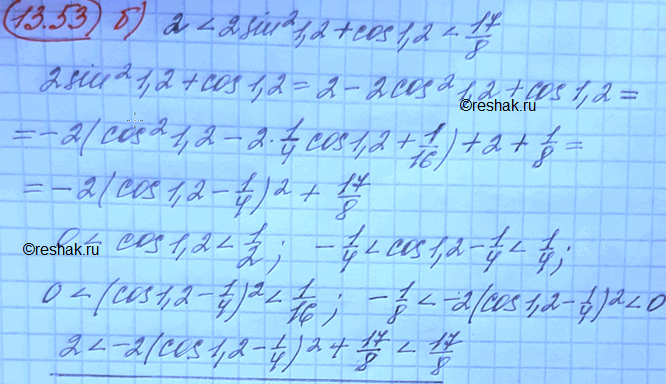 13.53 б) 2 < 2sin²1,2 + cos1,2 < 17/8
2sin²1,2 + cos1,2 = 2 - 2cos²1,2 + cos1,2 =
©reshak.ru
= -2(cos²1,2 - 2·1/4 cos1,2 + 1/16) + 2 + 1/8 =
= -2(cos1,2 - 1/4)² + 17/8
0 < cos1,2 < 1/2; -1/4 < cos1,2 - 1/4 < 1/4;
©reshak.ru
0 < (cos1,2 - 1/4)² < 1/16; -1/8 < -2(cos1,2 - 1/4)² < 0
2 < -2(cos1,2 - 1/4)² + 17/8 < 17/8
©reshak.ru